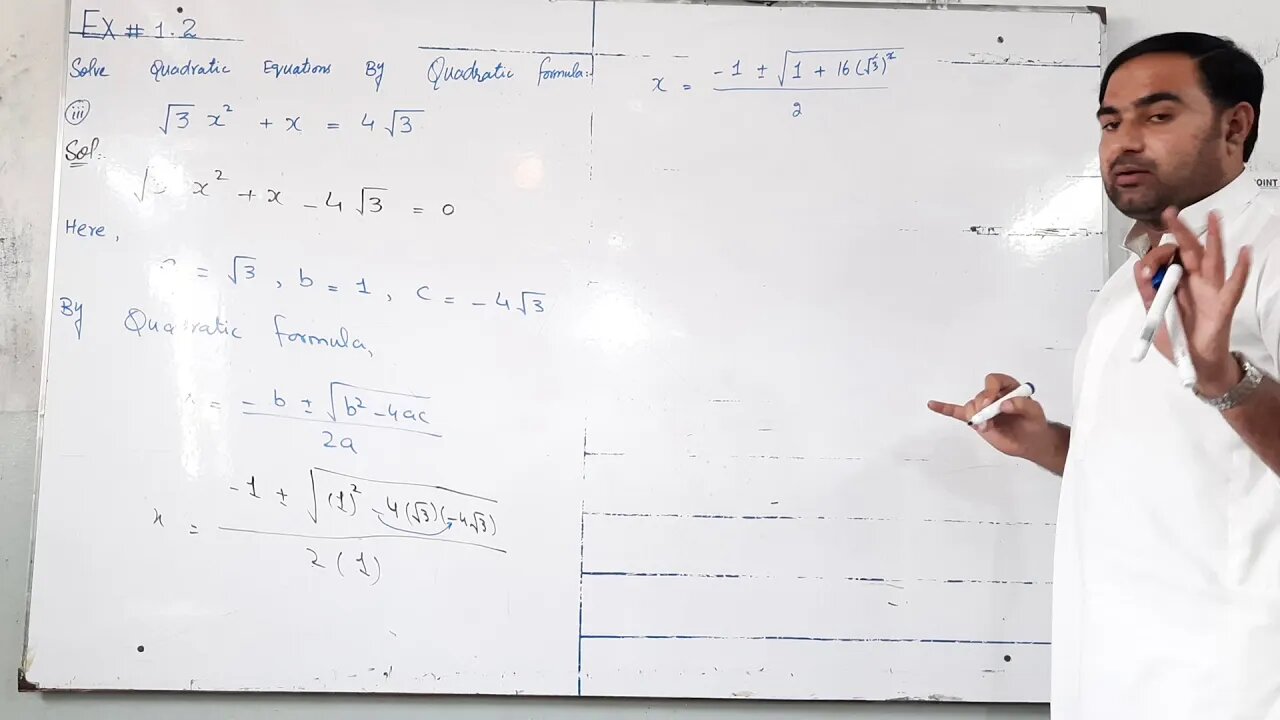 Ex # 1.2
Solve Quadratic Equations By Quadratic formula:
(iii) √3 x² + x = 4√3
Sol:
√ x² + x - 4√3 = 0
Here,
= √3, b = 1, c = -4√3
By Quadratic formula,
= -b ± √b² - 4ac
2a
x = -1 ± √(1)² - 4(√3)(-4√3)
2(1)
x = -1 ± √1 + 16(√3)²
2
OINT